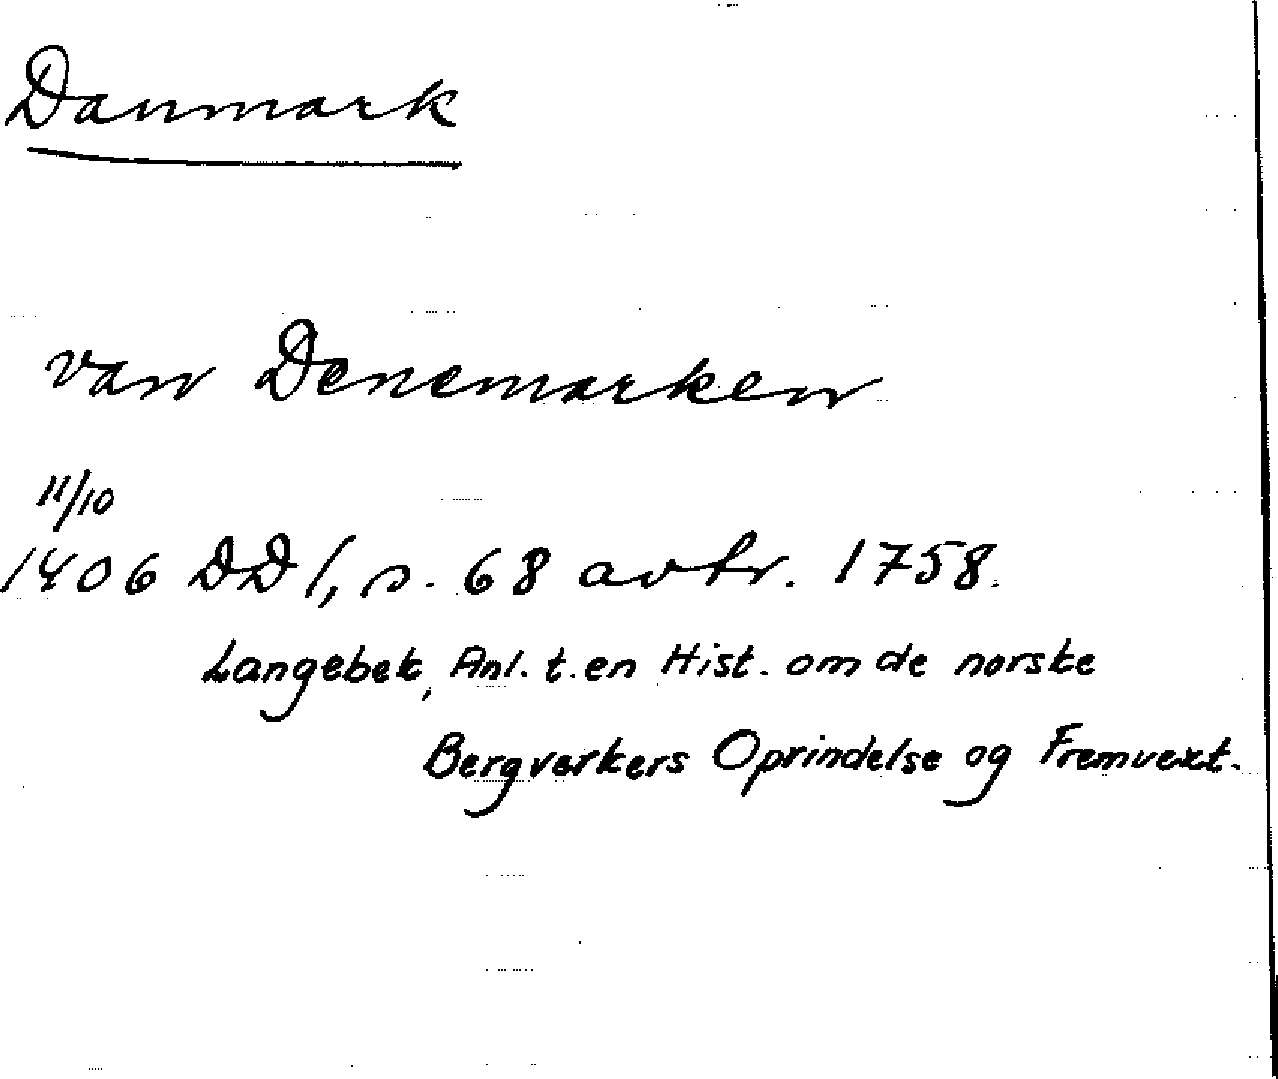 Danmark
van Denemarken
11/10
1406 DD 1, s. 68 avtr. 1758.
Langebek, Anl. t. en Hist. om de norske
Bergverkers Oprindelse og Fremvext.